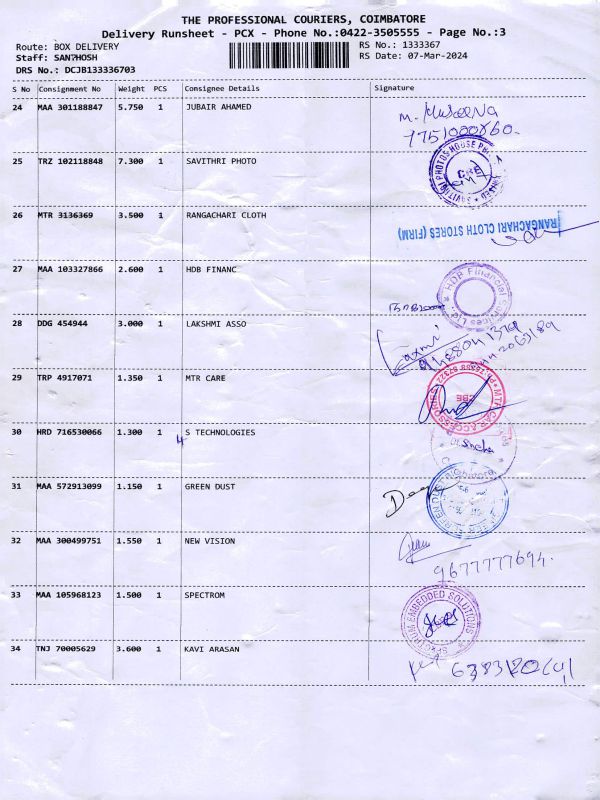 THE PROFESSIONAL COURIERS, COIMBATORE
Delivery Runsheet - PCX - Phone No.:0422-3505555 - Page No.:3
Route: BOX DELIVERY
RS No.: 1333367
Staff: SANTHOSH
RS Date: 07-Mar-2024
DRS No.: DCJB133336703
S No Consignment No Weight PCS Consignee Details Signature
24 MAA 301188847 5.750 1 JUBAIR AHAMED
25 TRZ 102118848 7.300 1 SAVITHRI PHOTO
CBE
26 MTR 3136369 3.500 1 RANGACHARI CLOTH
RANGACHARI CLOTH STORES (FIRM)
27 MAA 103327866 2.600 1 HDB FINANC
HDB Financial Services Ltd
28 DDG 454944 3.000 1 LAKSHMI ASSO
Laxmi
29 TRP 4917071 1.350 1 MTR CARE
MTR CAR ACCESSORIES
CBE
30 HRD 716530066 1.300 1 S TECHNOLOGIES
4
31 MAA 572913099 1.150 1 GREEN DUST
32 MAA 300499751 1.550 1 NEW VISION
9677777694.
33 MAA 105968123 1.500 1 SPECTROM
SPECTRUM EMBEDDED SOLUTIONS
34 TNJ 70005629 3.600 1 KAVI ARASAN